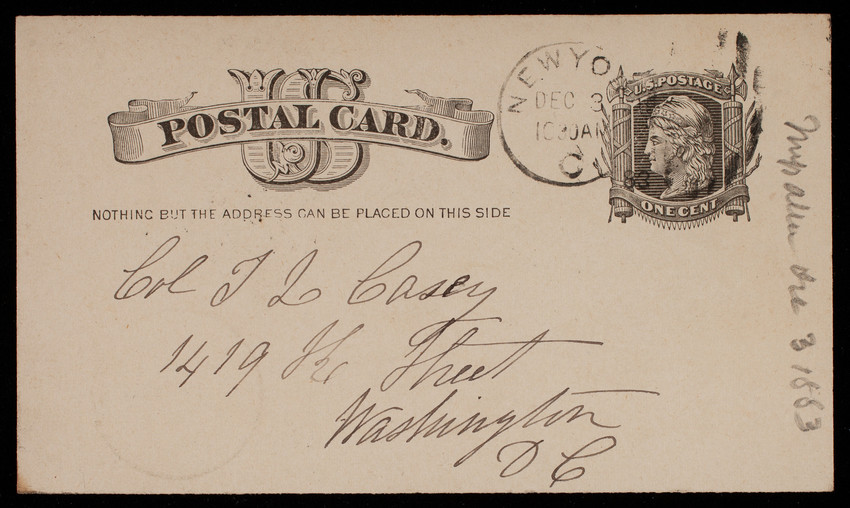 US
POSTAL CARD.
NOTHING BUT THE ADDRESS CAN BE PLACED ON THIS SIDE
NEW YO
DEC 3
1030AM
C
83
U.S. POSTAGE
ONE CENT
Col T L Casey
1419 K Street
Washington
D C
Dec 3 1883